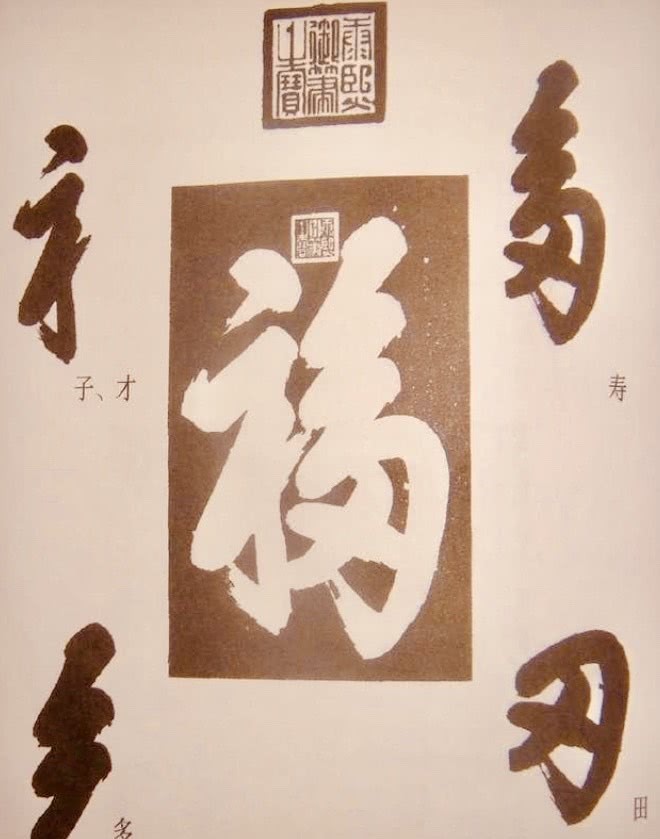 康熙
御筆
之寶
福
子、才
寿
多
田